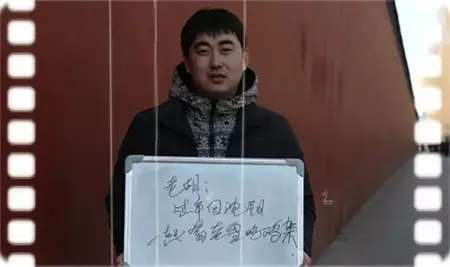 老胡：
过年回沈阳
一起喝老雪吃鸡架